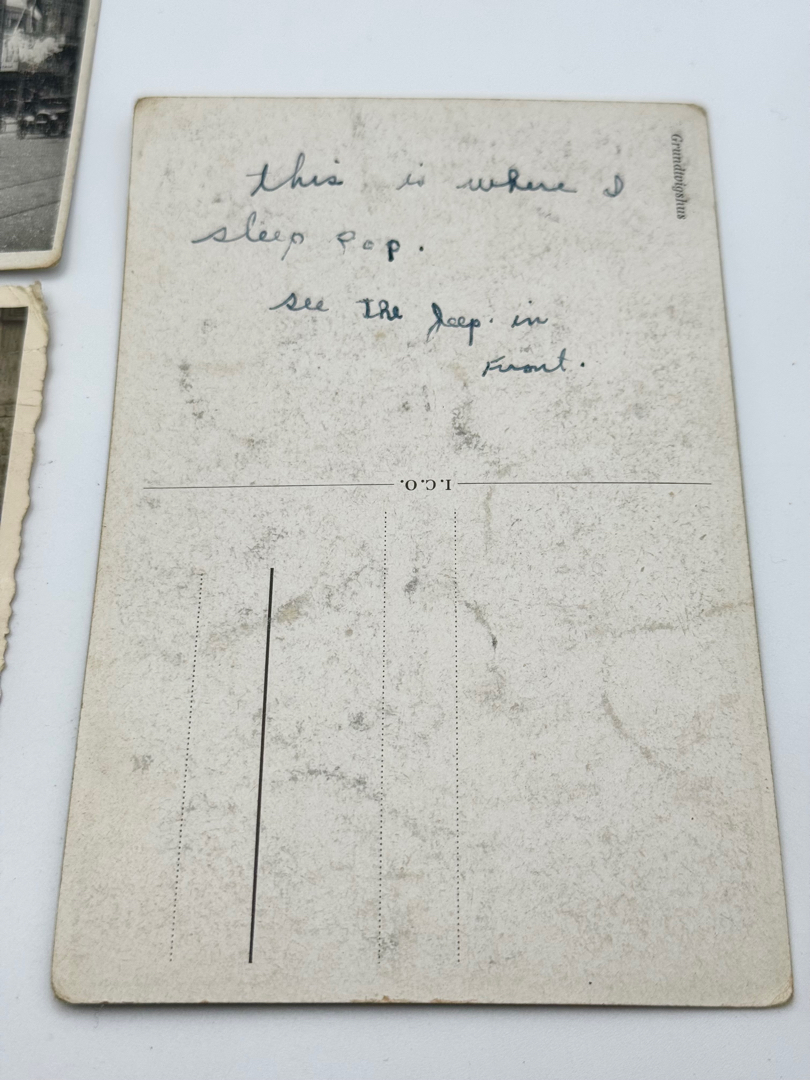 Grundtvigshus
this is where I
sleep Pop.
see the Jeep. in
Front.
I.C.O.